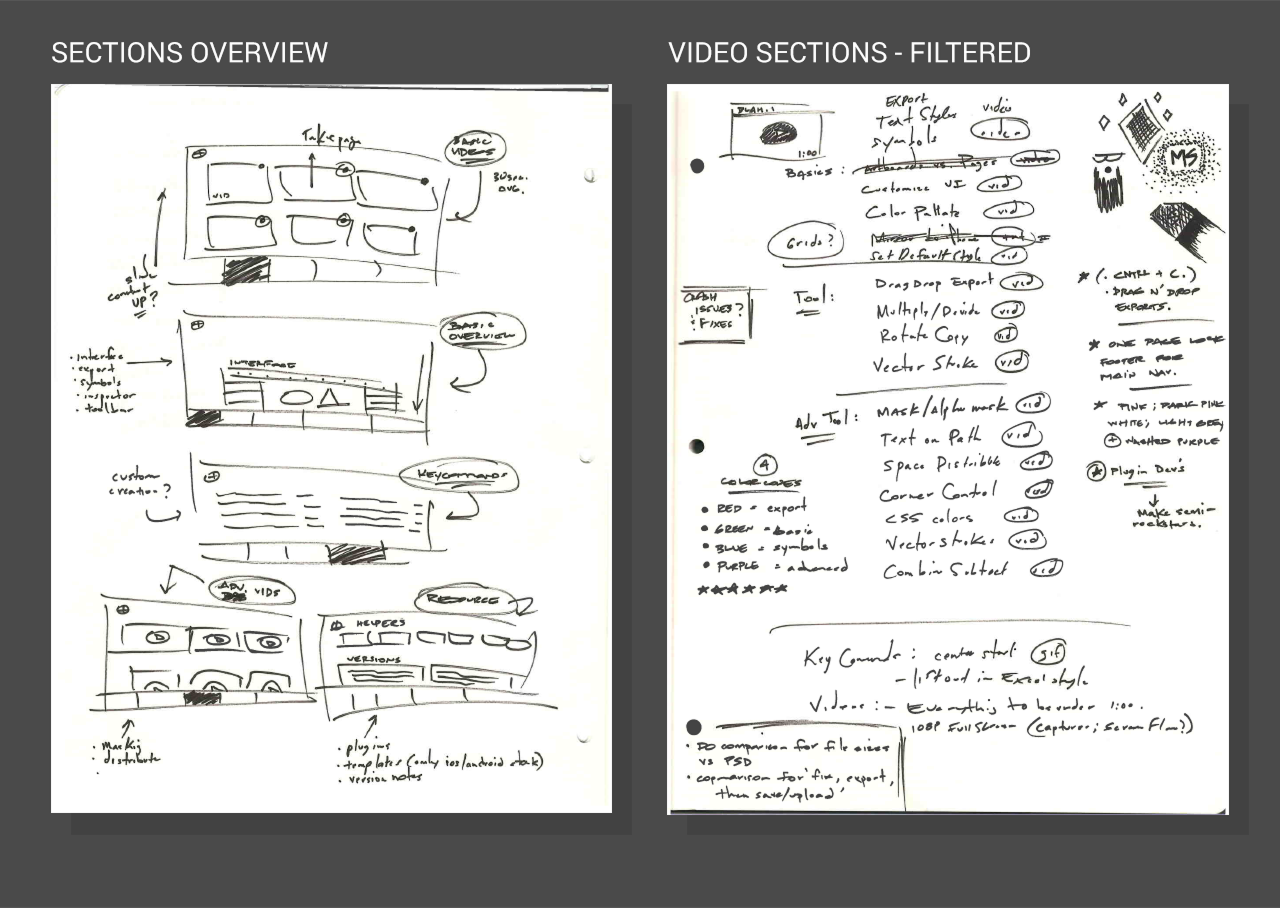 SECTIONS OVERVIEW
Take 2 page
BASIC
VIDEOS
30 sec.
AVG.
VID
slide
content
UP?
BASIC
OVERVIEW
INTERFACE
• interface
• export
• symbols
• inspector
• toolbar
KEYCOMMANDS
custom
creation?
ADV.
VIDS
RESOURCE
HELPERS
VERSIONS
• Masking
• distribute
• plugins
• templates (only ios/android stock)
• version notes
VIDEO SECTIONS - FILTERED
BLAH.1
1:00
EXPORT
Text Styles
Symbols
video
video
BASICS:
Artboards vs. Pages
Customize UI vid
Color Pallate vid
Grids?
Set Default Style vid
Tool:
Drag Drop Export vid
Multiply/Divide vid
Rotate Copy vid
Vector Stroke vid
CRASH
ISSUES?
FIXES
Adv Tool:
MASK/Alpha mask vid
Text on Path vid
Space Distribute vid
Corner Control vid
CSS colors vid
Vector strokes vid
Combin Subtract vid
4
COLOR CODES
• RED = export
• GREEN = basic
• BLUE = symbols
• PURPLE = advanced
MS
★ (. CNTRL + C.)
• DRAG N' DROP
EXPORTS.
★ ONE PAGE LOOK
FOOTER FOR
MAIN NAV.
★ PINK; DARK PINK
WHITE; LIGHT GREY
+ WASHED PURPLE
★ Plugin Dev's
Make semi-
rockstars.
Key Commands: center start gif
- list out in Excel style
Videos: - Everything to be under 1:00.
1080P Full Screen (Capturer; Screen Flow?)
• DO comparison for file sizes
vs PSD
• comparison for 'fix, export,
then save/upload'